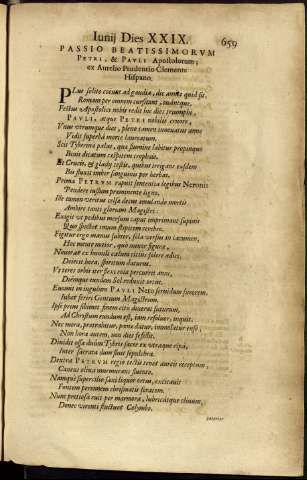 Iunij Dies XXIX.
659
PASSIO BEATISSIMORVM
PETRI, & PAVLI Apostolorum;
ex Aurelio Prudentio Clemente
Hispano.
PLus solito coeunt ad gaudia, dic amice quid sit.
Romam per omnem cursitant, ouantque.
Festus Apostolici nobis redit hic dies triumphi,
PAVLI, atque PETRI nobilis cruore,
Vnus vtrumque dies, pleno tamen innouatus anno
Vidit superba morte laureatum.
Scit Tyberina palus, quæ flumine labitur propinquo
Binis dicatum cespitem trophæis.
Et Crucis, & gladij testis, quibus irrigans easdem
Bis fluxit imber sanguinis per herbas.
Prima PETRVM rapuit sententia legibus Neronis
Pendere iussum præminente ligno.
Ille tamen veritus celsæ decus æmulando mortis
Ambire tanti gloriam Magistri:
Exigit vt pedibus mersum caput imprimant supinis
Quo spectet imum stipitem cerebro.
Figitur ergo manus subter, sola versus in cacumen,
Hoc mente maior, quo minor figura.
Nouerat ex humili cælum citius solere adiri,
Deiecit hora, spiritum daturus.
Vt teres orbis iter flexi rota percurrit anni,
Diemque eundem Sol reduxit ortus.
Euomit in iugulum PAVLI Nero feruidum furorem,
Iubet feriri Gentium Magistrum.
Ipse prius sibimet finem cito dixerat futurum,
Ad Christum eundum est, iam resoluor, inquit.
Nec mora, protrahitur, pœnæ datur, immolatur ense;
Non hora vatem, non dies fefellit.
Diuidit ossa duûm Tybris sacer ex vtraque ripa,
Inter sacrata dum fluit sepulchra.
Dextra PETRVM regio tectis tenet aureis receptum,
Canens oliua murmurans fluento.
Namque supercilio saxi liquor ortus, excitauit
Fontem perennem chrismatis feracem.
Nunc pretiosa ruit per marmora, lubricatque cliuum,
Donec virenti fluctuet Colymbo.